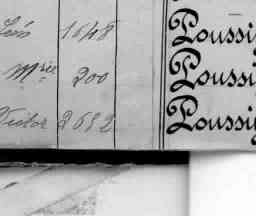 Léo 1648 Poussi
Mrie 200 Poussi
Victor 2632 Poussi